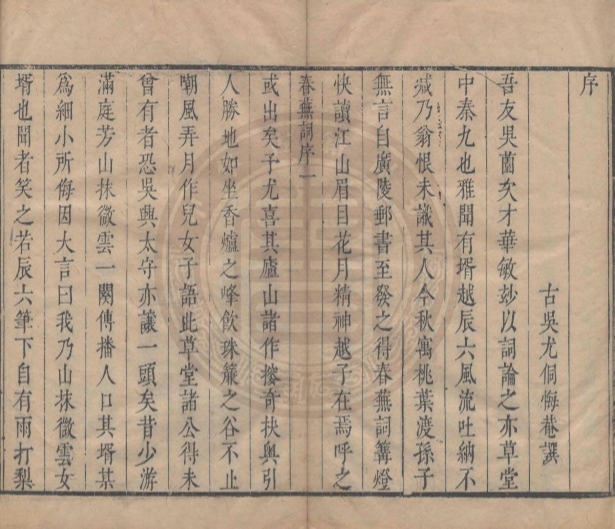 序
古吳尤侗悔菴譔
吾友吳薗次才華敏玅以詞論之亦草堂
中秦九也雅聞有壻越辰六風流吐納不
減乃翁恨未識其人今秋寓桃葉渡孫子
無言自廣陵郵書至發之得春蕪詞篝燈
快讀江山眉目花月精神越子在焉呼之
春蕪詞序一
或出矣予尤喜其廬山諸作搜奇抉與引
人勝地如坐香爐之峰飲珠簾之谷不止
嘲風弄月作兒女子語此草堂諸公得未
曾有者恐吳興太守亦讓一頭矣昔少游
滿庭芳山抹微雲一闋傳播人口其壻某
爲細小所侮因大言曰我乃山抹微雲女
壻也聞者笑之若辰六筆下自有雨打梨